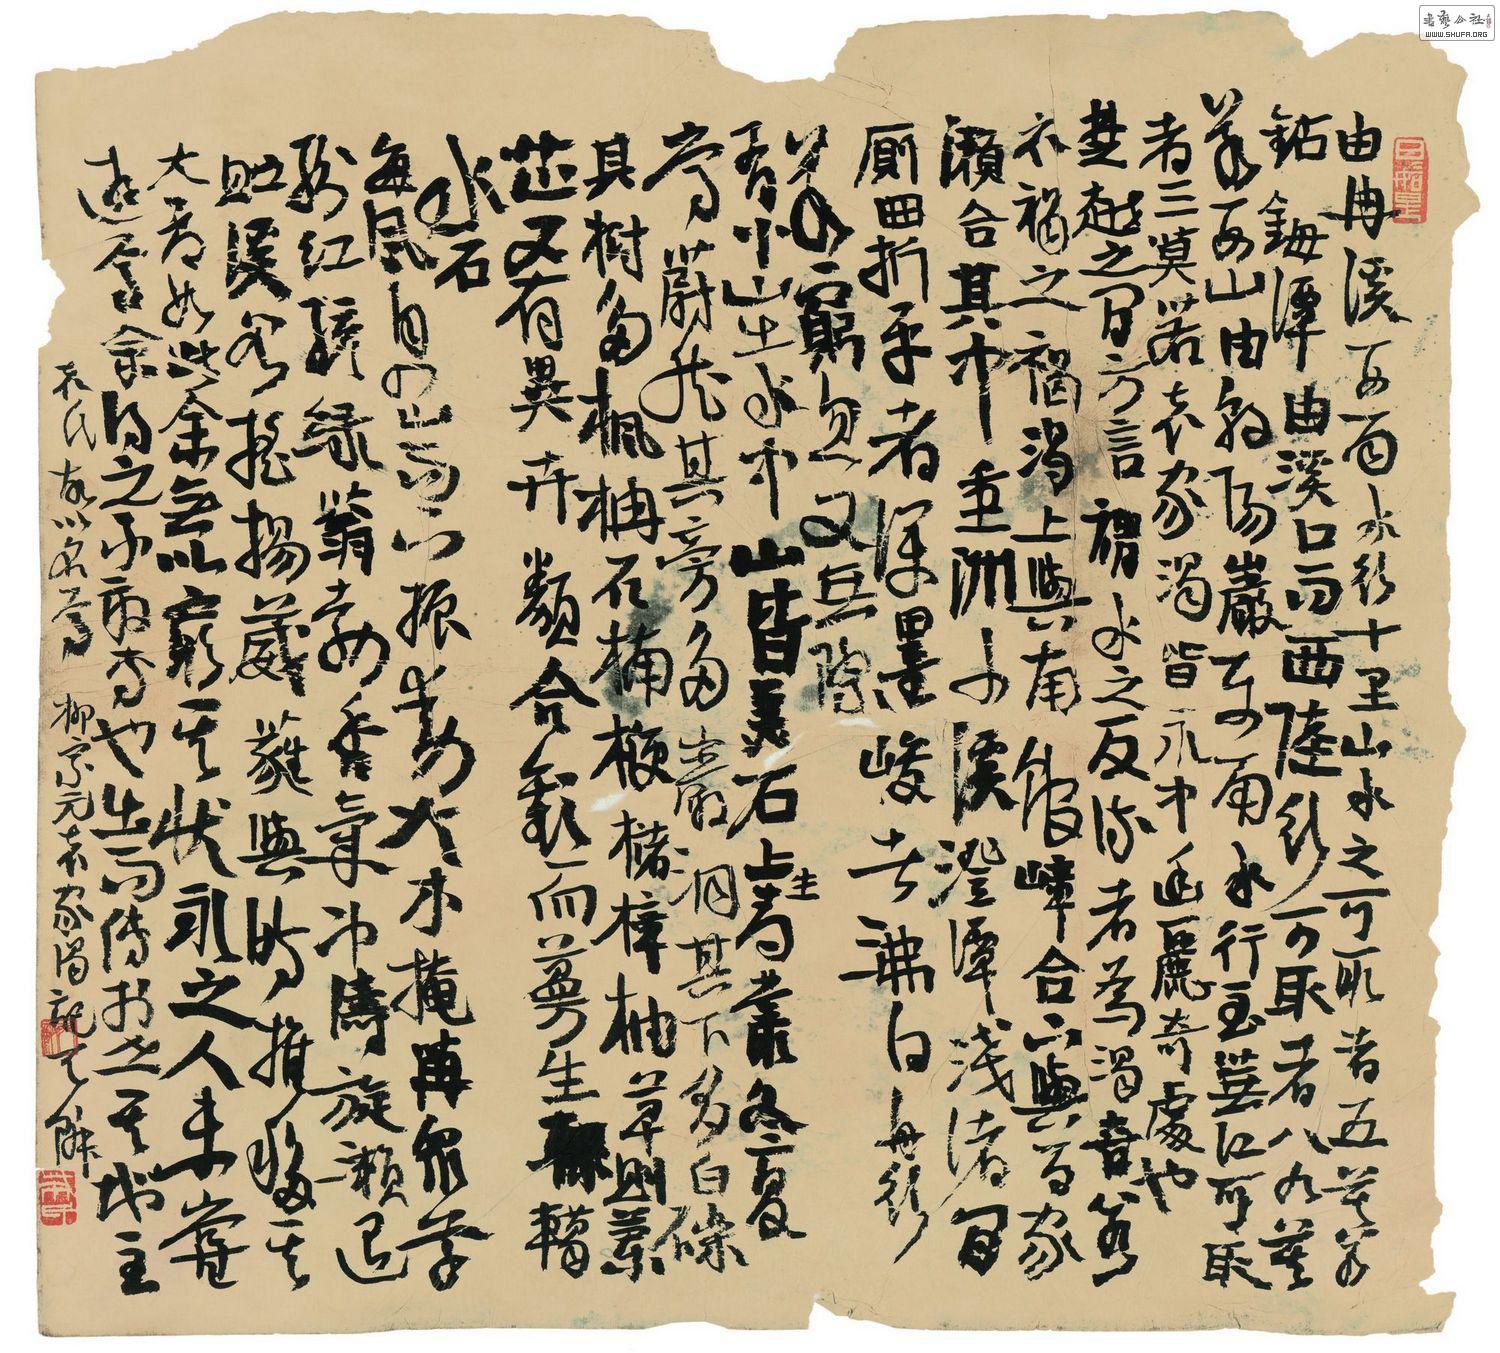 由冉溪西南水行十里山水之可取者五莫若
鈷鉧潭由溪口而西陸行可取者八九莫
若西山由朝陽巖東南水行至蕪江可取
者三莫若袁家渴皆永中幽麗奇處也
楚越之間方言謂水之反流者為渴音若
衣褐之褐渴上與南館嶂合下與百家
瀨合其中重洲小溪澄潭淺渚間
廁曲折平者深墨峻者沸白舟行
若窮忽又無際
有小山出水中山皆美石上生青叢冬夏
常蔚然其旁多巖洞其下多白礫
其樹多楓柟石楠楩櫧樟柚草則蘭
芷又有異卉類合歡而蔓生轕
水石
每風自四山而下振動大木掩苒眾草
紛紅駭綠蓊葧香氣冲濤旋瀨退
貯溪谷搖揚葳蕤與時推移其
大都如此余無以窮其狀永之人未嘗
遊焉余得之不敢專也出而傳於世其地主
袁氏故以名焉 柳宗元袁家渴記
WWW.SHUFA.ORG